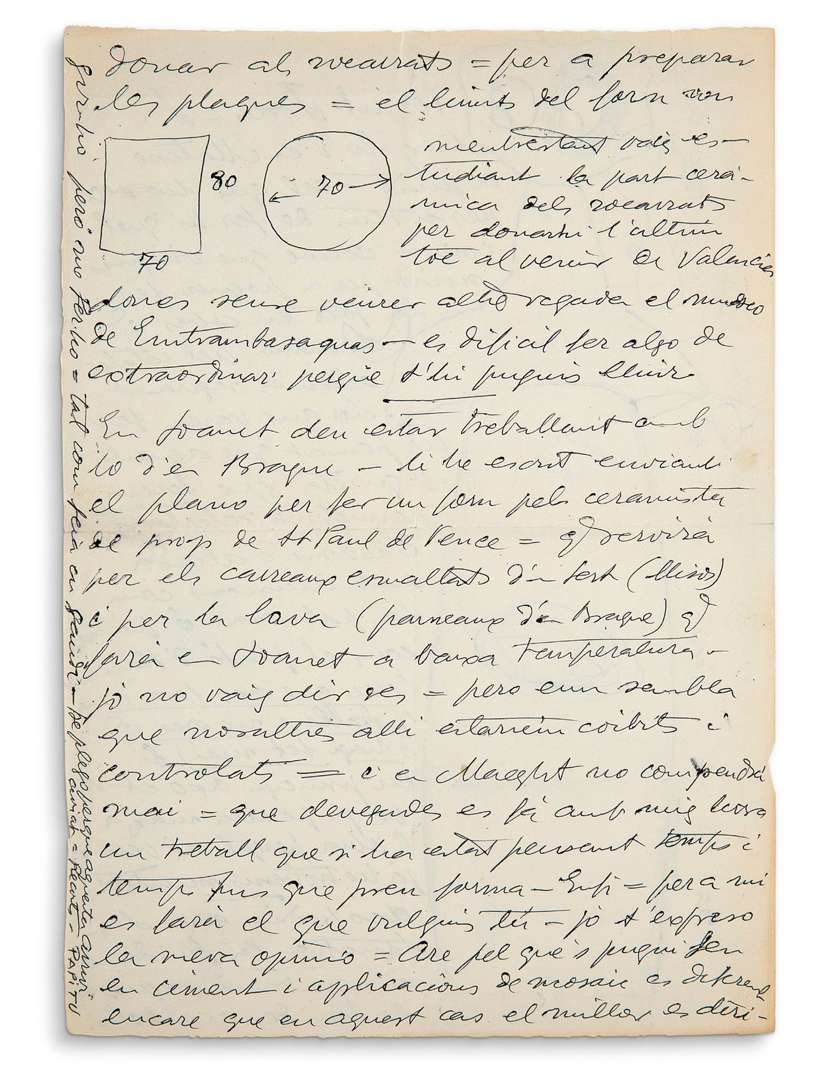 donar als socarrats = per a preparar
les plaques = el limits del forn son
80
70
70
mentrestant vaig es-
tudiant la part cera-
mica dels socarrats
per donarhi l'altim
toc al venir de Valencia
dones sense veurer altre vegada el museo
de Emtrambasaguas - es dificil fer algo de
extraordinari perque t'hi puguis lluir
En Joanet deu estar treballant amb
lo d'en Braque - li he escrit enviantli
el plano per fer un forn pels ceramista
de prop de St Paul de Vence = qē servirà
per els carreaux esmaltats d'en Sert (Misós)
i per la lava (panneaux d'en Braque) qē
farà en Joanet a baixa temperatura -
jo no vaig dir res = pero em sembla
que nosaltres alli estariem coibits i
controlats = i en Maeght no compendrá
mai = que devegades es fá amb mig hora
un treball que si ha estat pensant temps i
temps fins que pren forma - Enfi = per a mi
es farà el que vulguis tú - jo t'expreso
la meva opinio = Are pel que's pugui fer
en ciment i aplicacions de mosaic es diferent
encare que en aquest cas el millor es diri-
girho pero no ferho = tal com feia en Gaudi - te plego perque aquesta arrivi
aviat = Records - PAPITU